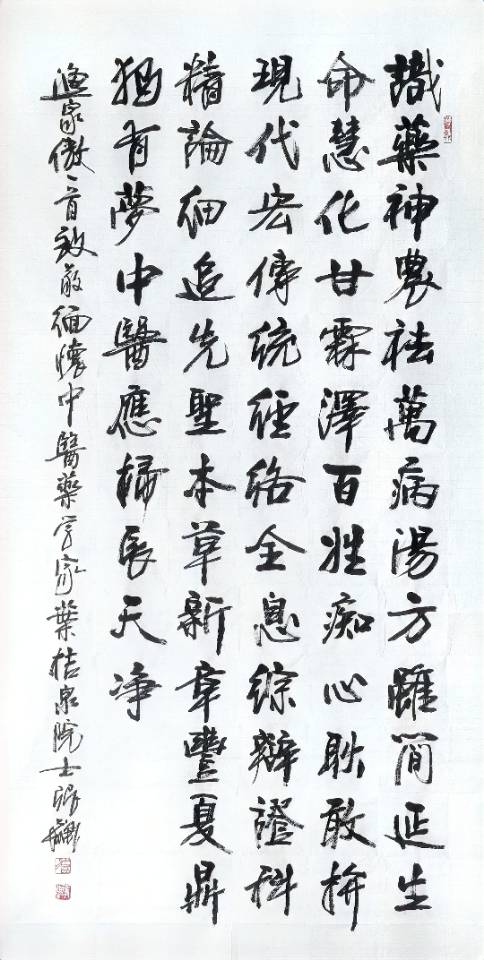 識藥神農祛萬病湯方雖簡延生
命慧化甘霖澤百姓痴心耿敢拚
現代宏傳統經絡全息綜辯證科
精論細追先聖本草新章豐夏鼎
猶有夢中醫應掃長天凈
漁家傲一首致敬緬懷中醫藥學家葉桔泉院士